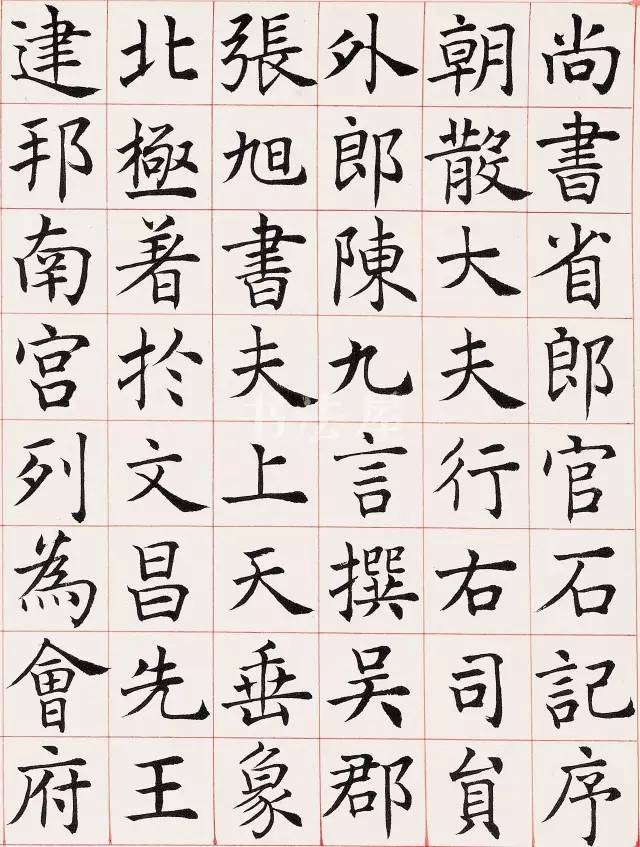 尚書省郎官石記序
朝散大夫行右司貟
外郎陳九言撰吴郡
張旭書夫上天垂象
北極著於文昌先王
建邦南宫列為會府
书法屋